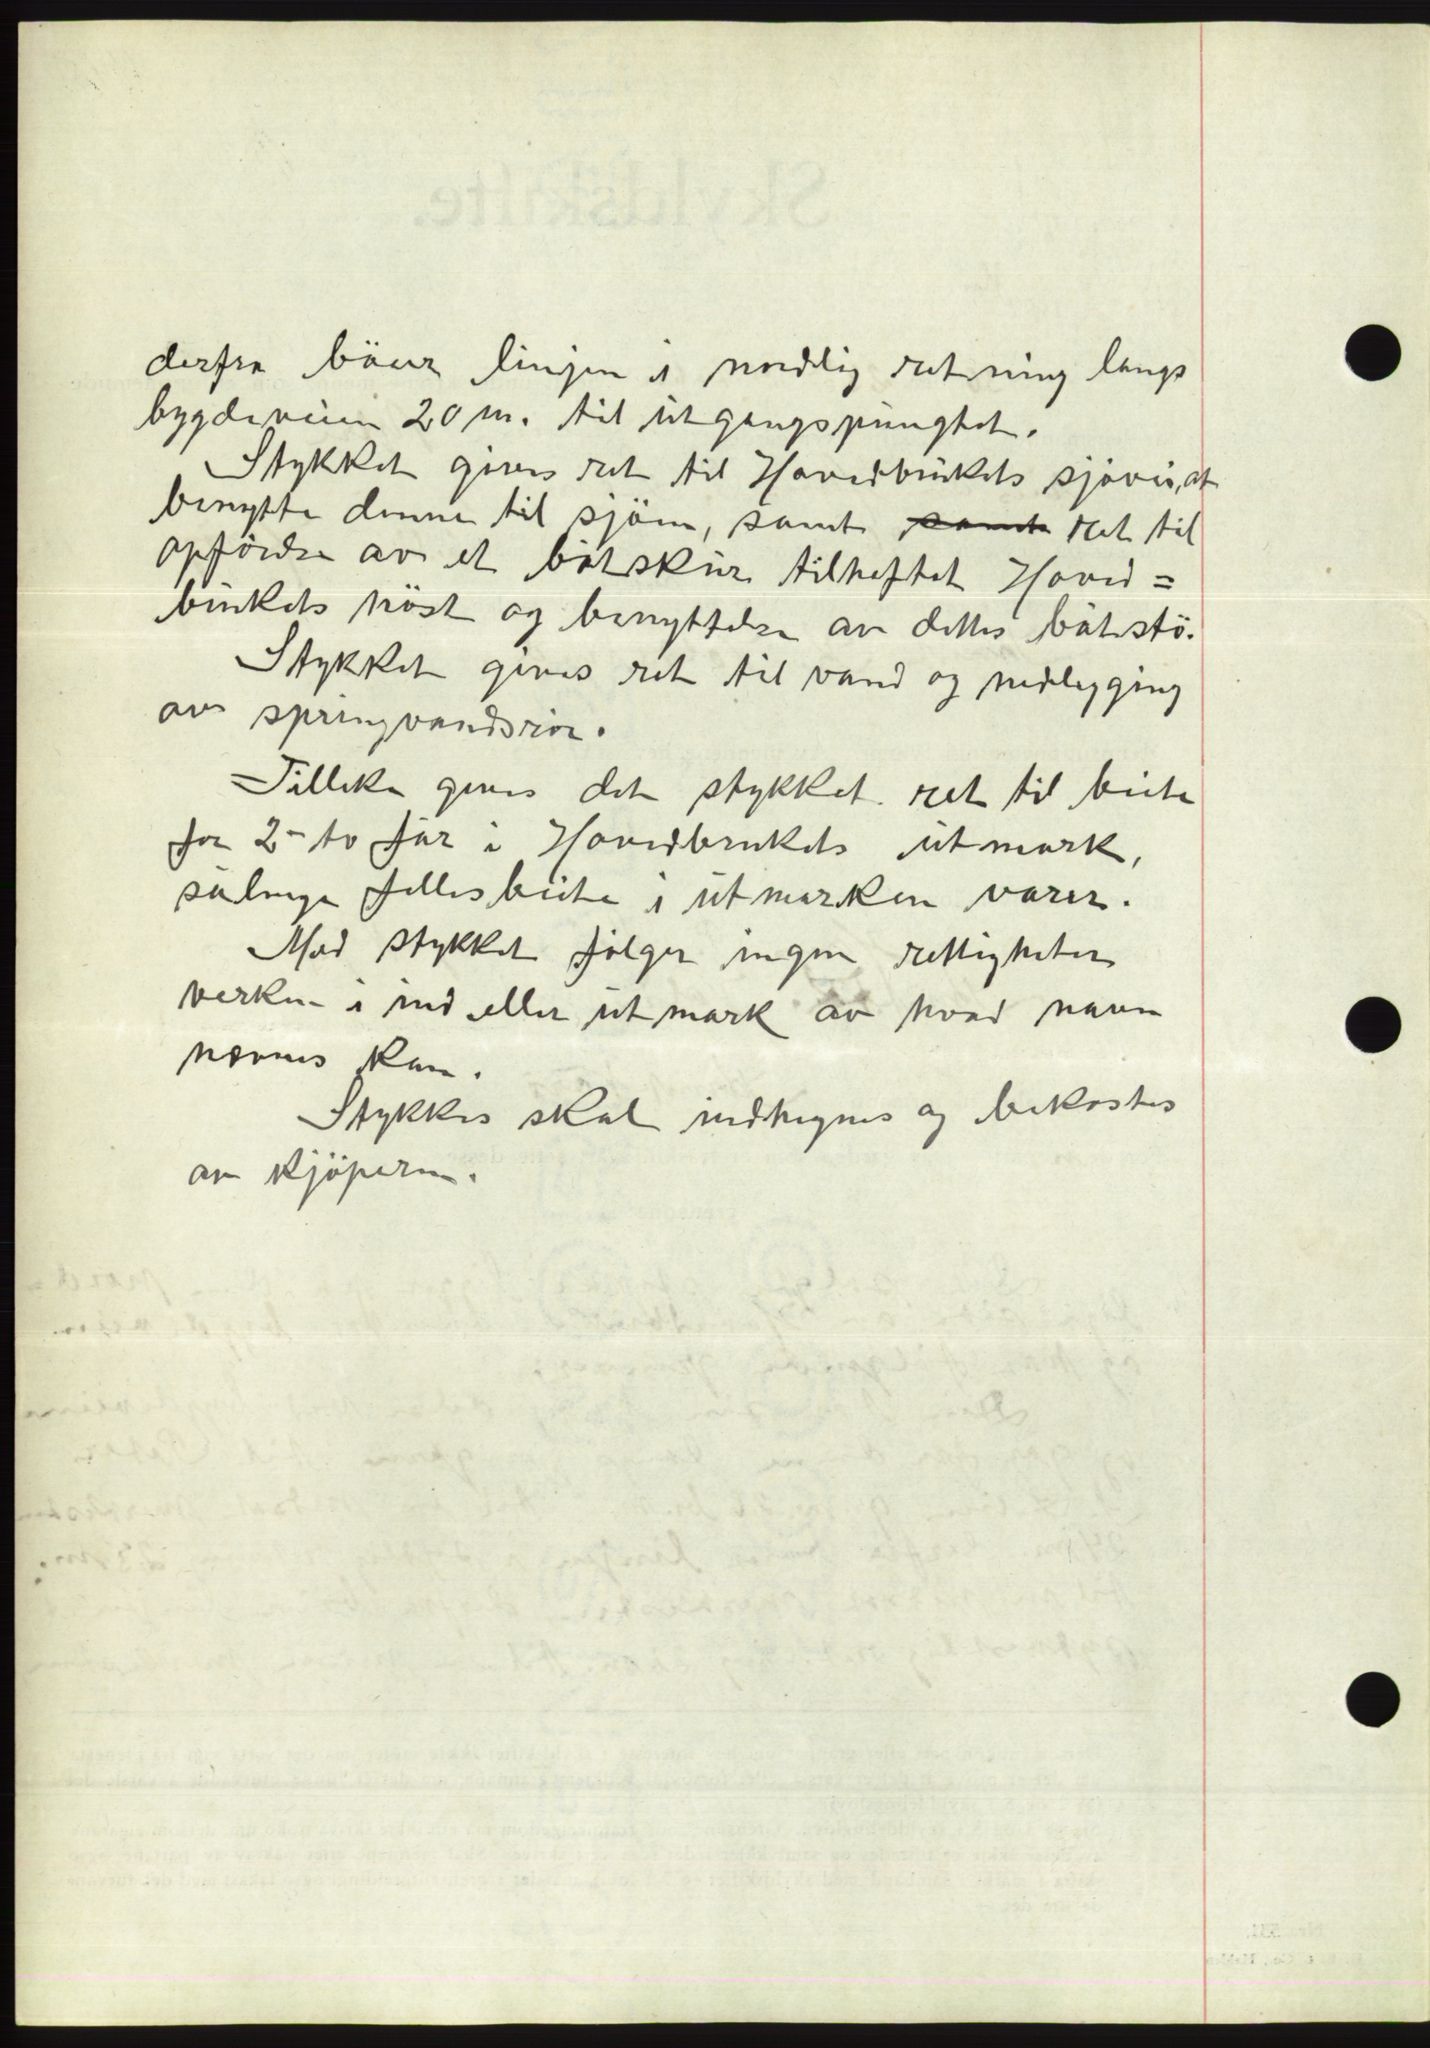 derfra böier linjen i nordlig retning langs
bygdeveien 20 m. til utgangspungtet.
Stykket gives ret til Hovedbrukets sjövei, at
benytte denne til sjöen, samt samt ret til
opförelse av et båtskur tilheftet Hoved=
brukets nöst og benyttelse av dettes båtstö.
Stykket gives ret til vand og nedlegging
av springvandsrör.
Tilleke gives det stykket ret til beite
for 2- to får i Hovedbrukets utmark,
sålenge fellesbeite i utmarken varer.
Med stykket fölger ingen rettigheter
verken i ind eller utmark av hvad navn
nevnes kan.
Stykkes skal indhegnes og bekostes
av kjöperen.